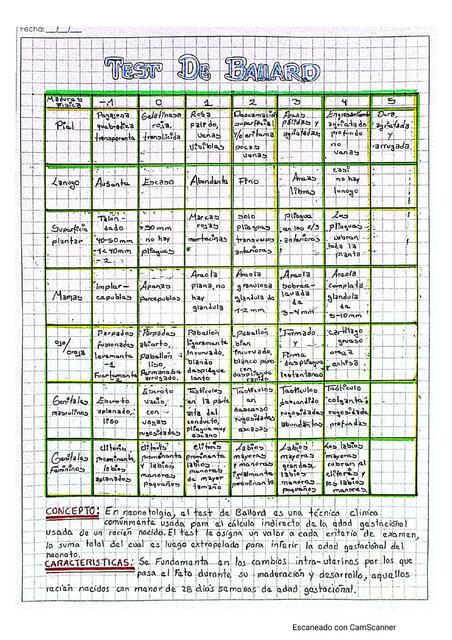 Fecha: / /
TEST DE BALLARD
Madurez física -1 0 1 2 3 4 5
Piel
Pegajosa quebradiza transparente
Gelatinosa roja, translúcida
venas visibles
Descamación superficial y/o eritema pocas venas
Áreas pálidas y agrietadas
agrietado profundo no venas
Dura, agrietada y arrugada.
Lanugo
Ausente
Escaso
Abundante
Fino
Áreas libres
casi no hay lanugo
Superficie plantar
Talón-dedo 40-50mm -1 <40mm -2
>50 mm no hay pliegues
Marcas rojas mortecinas
solo pliegues transversos anteriores
pliegue en los 2/3 anteriores
Los pliegues cubren toda la planta
Mamas
Imperceptibles
Apenas perceptibles
Areola plana, no hay glándula
Areola granulosa glándula de 1-2 mm
Areola glándula de 5-10mm
ojo/oreja
Parpados fusionados levemente -1 Fuertemente -2
Parpados abierto, pabellón liso, permanece arrugado.
Pabellón ligeramente incurvado, blando despliegue lento
Pabellón bien incurvado, blando pero con despliegue rápido
Formado y Firme despliegue instantáneo
cartílago grueso oreja
Genitales masculinos
Escroto aplanado, liso
Escroto vacío, con rugosidades
Testículos en la parte alta del conducto, pliegue muy escaso
Testículos en descenso rugosidades escasas
Testículos descendido rugosidades abundantes
Testículo colgante, rugosidades profundas
Genitales Femeninos
clítoris prominente, labios aplanados
clítoris prominente y labios menores pequeños
clítoris prominente, labios menores de mayor tamaño
Labios mayores y menores igualmente prominente
Labios mayores grandes, labios menores pequeños
Los labios mayores cubren al clítoris y los labios menores.
CONCEPTO: En neonotolgía, el test de Ballard es una técnica clínica
comúnmente usada para el cálculo indirecto de la edad gestacional
usada de un recién nacido. El test le asigna un valor a cada criterio de examen,
la suma total del cual es luego extrapolado para inferir la edad gestacional del
neonato.
CARACTERISTICAS: Se Fundamenta en los cambios intra-uterinos por los que
pasa el Feto durante su maduración y desarrollo, aquellos
recién nacidos con menor de 28 días semanas de edad gestacional.
Escaneado con CamScanner